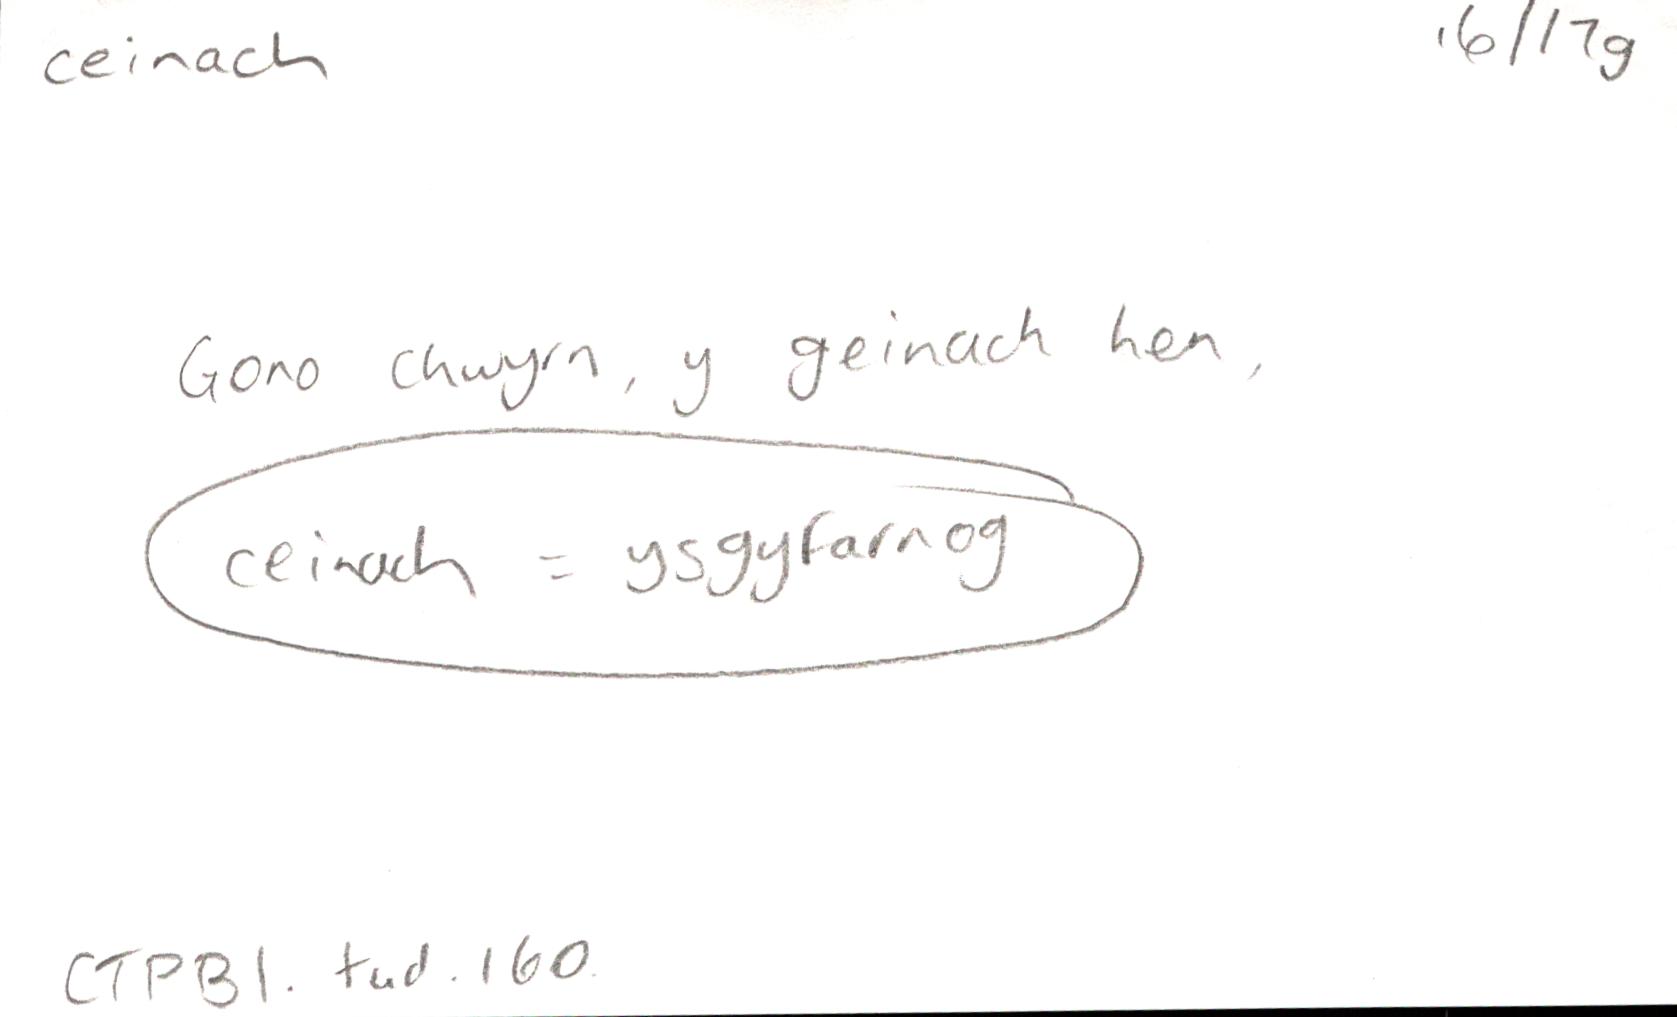 ceinach 16/17g
Gono chwyrn, y geinach hen,
ceinach = ysgyfarnog
CTPB1. tud. 160